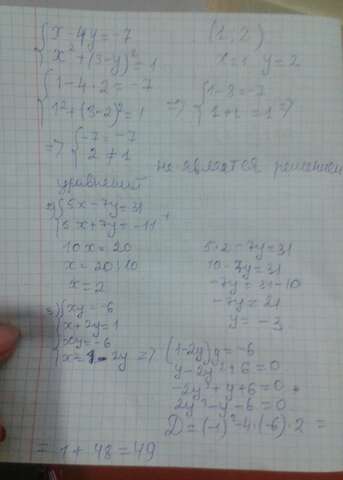 {x - 4y = -7
x² + (3-y)² = 1
(1; 2)
x=1 y=2
{1 - 4·2 = -7
1² + (3-2)² = 1
=> {1-8 = -7
1+1 = 1 =>
=> {-7 = -7
2 ≠ 1
не является решением
уравнений
2) {5x - 7y = 31
5x + 7y = -11 +
10x = 20
x = 20:10
x = 2
5·2 - 7y = 31
10 - 7y = 31
-7y = 31-10
-7y = 21
y = -3
3) {xy = -6
x + 2y = 1
{xy = -6
x = 1 - 2y =>
(1-2y)y = -6
y - 2y² + 6 = 0
-2y² + y + 6 = 0
2y² - y - 6 = 0
D = (-1)² - 4·(-6)·2 =
= 1 + 48 = 49